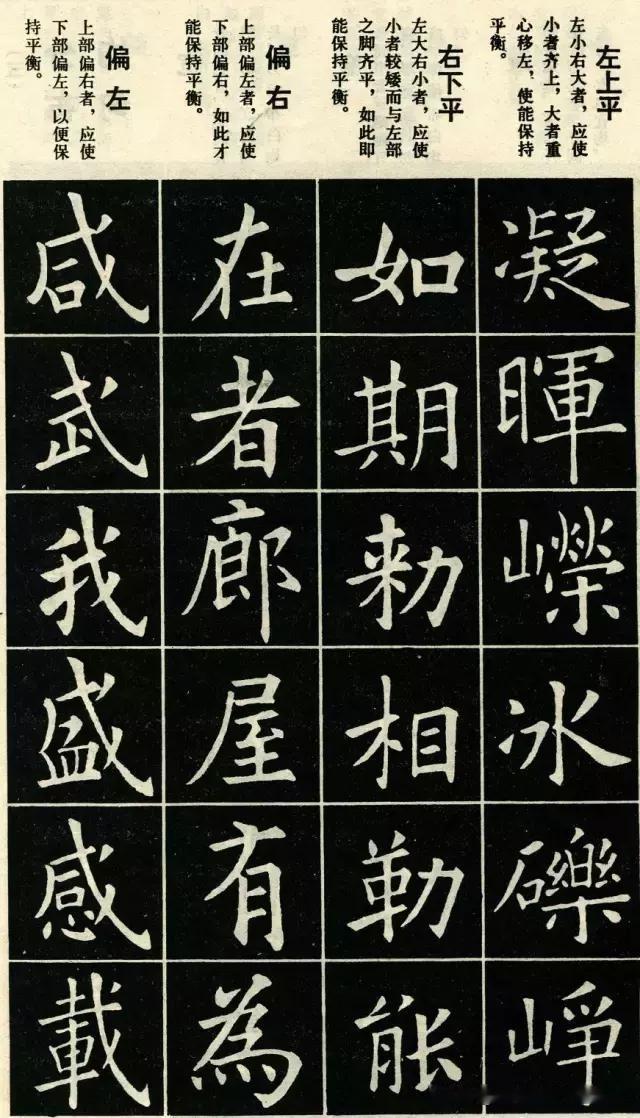 左上平
左小右大者，应使
小者齐上，大者重
心移左，使能保持
平衡。
右下平
左大右小者，应使
小者较矮而与左部
之脚齐平，如此即
能保持平衡。
偏右
上部偏左者，应使
下部偏右，如此才
能保持平衡。
偏左
上部偏右者，应使
下部偏左，以便保
持平衡。
凝暉嶸冰礫崢
如期勑相勒能
在者廊屋有為
咸武我盛感載